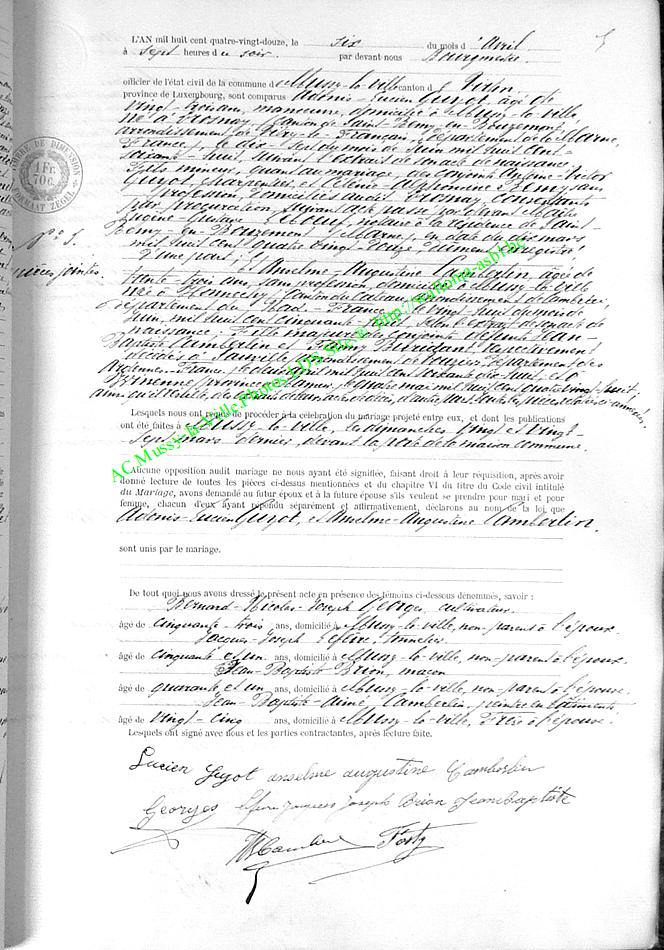 5
L'AN mil huit cent quatre-vingt-douze, le six du mois d'Avril
à sept heures du soir par devant nous Bourgmestre
officier de l'état civil de la commune de Mussy-la-ville canton de Virton
province de Luxembourg, sont comparus Adonis-Lucien Guyot, âgé de
vingt-trois ans, manœuvre, domicilié à Mussy-la-ville
né à Drosnay, Canton de Saint-Remy-en-Bouzemont,
arrondissement de Vitry-le-Français, département de la Marne,
France, le dix-sept du mois de juin mil huit cent
soixante-huit, suivant l'extrait de son acte de naissance,
Fils mineur, quant au mariage, des conjoints Antoine-Victor
Guyot, charpentier, et Clénie-Alphonsine Remy, sans
profession, domiciliés audit Drosnay, consentants
par procuration, suivant acte passé par devant Maître
Eugène-Gustave notaire à la résidence de Saint-
Remy-en-Bouzemont (Marne) en date du dix mars
mil huit cent quatre-vingt-douze, dûment enregistré
d'une part;
N° 5.
pièces jointes.
Et Anselme-Augustine Camberlin, âgée de
trente-trois ans, sans profession, domiciliée à Mussy-la-ville
née à canton du Cateau, arrondissement de Cambrai,
département du Nord-France, le vingt-huit du mois de
juin, mil huit cent cinquante-huit, selon l'extrait de son acte de
naissance, Fille majeure des conjoints défunts Jean-
Baptiste Camberlin et Fanny Buridant, respectivement
décédés à Sauville, arrondissement de Mézières, département des
Ardennes-France, le mil huit cent soixante-dix-huit, et à
Bienne province de Namur, le quatre mai mil huit cent quatre-vingt-sept
ainsi qu'il résulte de leurs actes de décès, d'autre part, toutes les pièces ci-annexées,
Lesquels nous ont requis de procéder à la célébration du mariage projeté entre eux, et dont les publications
ont été faites à Mussy-la-ville, les dimanches vingt et vingt-
sept mars dernier, devant la porte de la maison commune.
Aucune opposition audit mariage ne nous ayant été signifiée, faisant droit à leur réquisition, après avoir
donné lecture de toutes les pièces ci-dessus mentionnées et du chapitre VI du titre du Code civil intitulé
du Mariage, avons demandé au futur époux et à la future épouse s'ils veulent se prendre pour mari et pour
femme, chacun d'eux ayant répondu séparément et affirmativement, déclarons au nom de la loi que
Adonis-Lucien Guyot, et Anselme-Augustine Camberlin,
sont unis par le mariage.
De tout quoi nous avons dressé le présent acte en présence des témoins ci-dessous dénommés, savoir :
Bernard-Nicolas-Joseph Georges, cultivateur.
âgé de cinquante-trois ans, domicilié à Mussy-la-ville, non-parent à l'époux.
Jacques-Joseph Lefèvre,
âgé de cinquante et un ans, domicilié à Mussy-la-ville, non-parent à l'époux.
Jean-Baptiste Brion, maçon
âgé de quarante et un ans, domicilié à Mussy-la-ville, non-parent à l'épouse.
Jean-Baptiste-Aimé Camberlin, peintre en bâtiments
âgé de vingt-cinq ans, domicilié à Mussy-la-ville, Frère à l'épouse.
Lesquels ont signé avec nous et les parties contractantes, après lecture faite.
Lucien Guyot anselme augustine Camberlin
Georges Lefevre Jacques Joseph Brion Jean baptiste
AC Mussy-la-Ville Photos LDS Site © http://www.luxroots-asbl.be